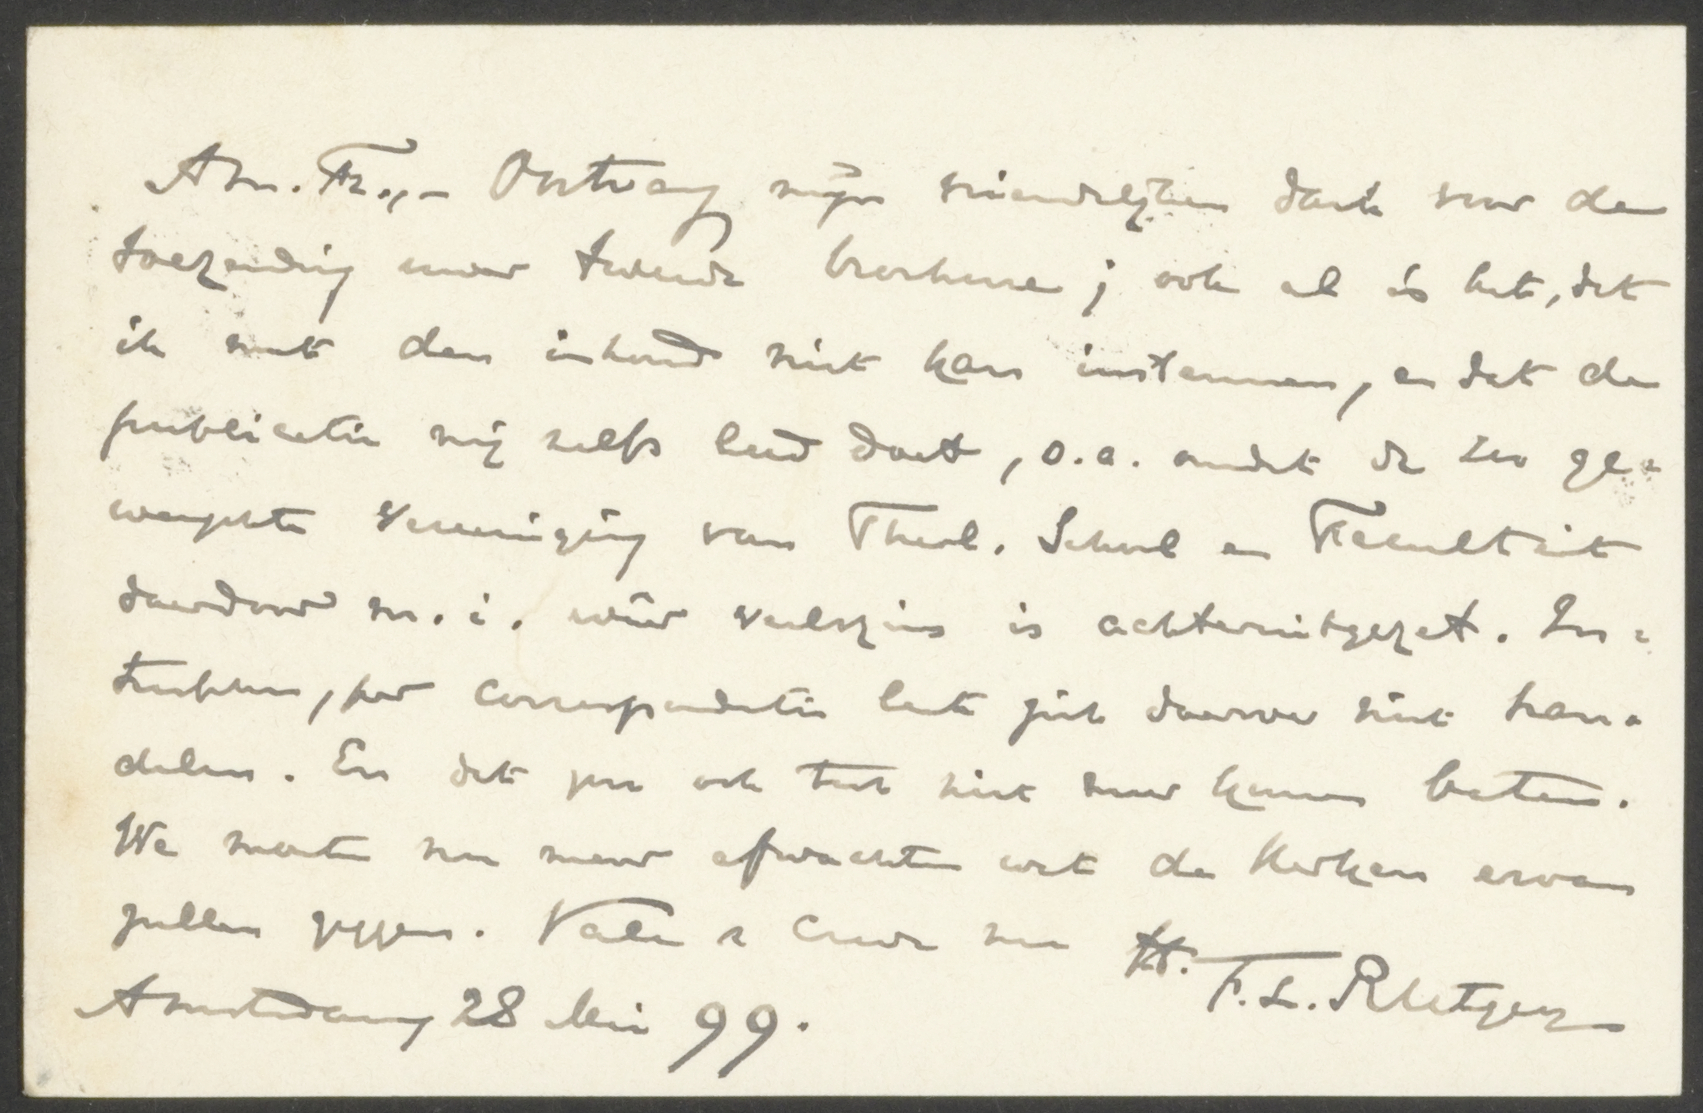 Am. Fr., – Ontvang mijn vriendelijken dank voor de
toezending uwer tweede brochure; ook al is het, dat
ik met den inhoud niet kan instemmen, en dat de
publicatie mij zelfs leed doet, o.a. omdat de zoo ge-
wenschte vereeniging van Theol. School en Faculteit
daardoor m.i. weêr veelszins is achteruitgezet. In-
tusschen, per correspondentie laat zich daarover niet han-
delen. En dat zou ook toch niet meer kunnen baten.
We moeten nu maar afwachten wat de Kerken ervan
zullen zeggen. Vale & Crede me
tt. F.L. Rutgers
Amsterdam 28 Mei 99.